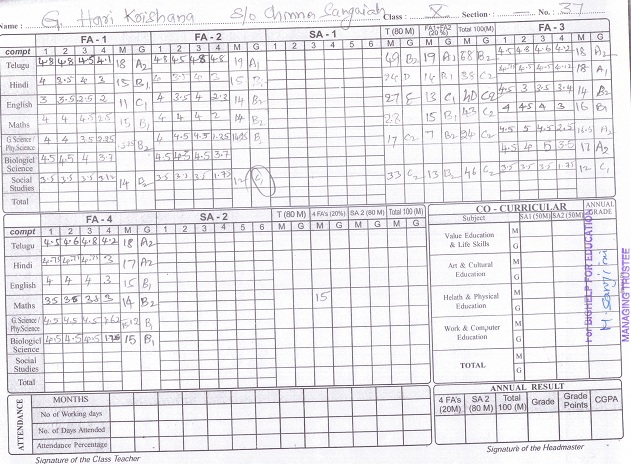 Name : G. Hari Krishana S/o Chinna Sangaiah Class : X Section : No. : 37
FA - 1 FA - 2 SA - 1 T (80 M) FA1+FA2 (20 %) Total 100(M) FA - 3
compt 1 2 3 4 M G 1 2 3 4 M G 1 2 3 4 5 6 M G M G M G 1 2 3 4 M G
Telugu 4.8 4.8 4.5 4.1 18 A2 4.8 4.5 4.8 4.8 19 A1 49 B2 19 A1 68 B2 4.5 4.8 4.6 4.2 18 A2
Hindi 4 3.5 4 3 15 B1 4 3.5 4 3 15 B1 24 D 14 B1 38 C2 18 A1
English 3 3.5 2.5 2 11 C1 4 3.5 4 2.3 14 B2 27 E 13 C1 40 C2 4.5 3 3.5 3.4 14 B2
Maths 4 4 4.5 2.5 15 B1 4 4 4 2 14 B2 28 15 B1 43 C2 4 4.5 4 3 16 B1
G.Science / Phy.Science 4 4 3.5 2.25 B2 4 4.5 4.5 1.25 B1 17 C2 7 B2 24 C2 4.5 5 4.5 2.5 16.5 A2
Biological Science 4.5 4.5 4 3.7 4.5 4.5 4.5 3.7 4.5 4 5 3.5 17 A2
Social Studies 3.5 3.5 3.5 14 B2 3.5 3.5 3.5 1.75 12 C1 33 C2 13 B2 46 C2 3.5 3.5 3.5 1.75 12 C1
Total
FA - 4 SA - 2 T (80 M) 4 FA's (20%) SA 2 (80 M) Total 100 (M)
1 2 3 4 M G 1 2 3 4 5 6 M G M G M G M G
Telugu 4.5 4.6 4.8 4.2 18 A2
Hindi 4 4.75 4.75 3 17 A2
English 4 4 4 3 15 B1
Maths 3.5 3.5 3.5 3 14 B2 15
G.Science / Phy.Science 4.5 4.5 4.5 B1
Biological Science 4.5 4.5 4.5 1.75 15 B1
Social Studies
Total
CO - CURRICULAR ANNUAL GRADE
Subject SA1 (50M) SA2 (50M)
Value Education & Life Skills M G
Art & Cultural Education M G
Helath & Physical Education M G
Work & Computer Education M G
TOTAL M G
For BIGHELP FOR EDUCATION
MANAGING TRUSTEE
ATTENDANCE
MONTHS
No of Working days
No. of Days Attended
Attendance Percentage
ANNUAL RESULT
4 FA's (20M) SA 2 (80 M) Total 100 (M) Grade Grade Points CGPA
Signature of the Class Teacher
Signature of the Headmaster